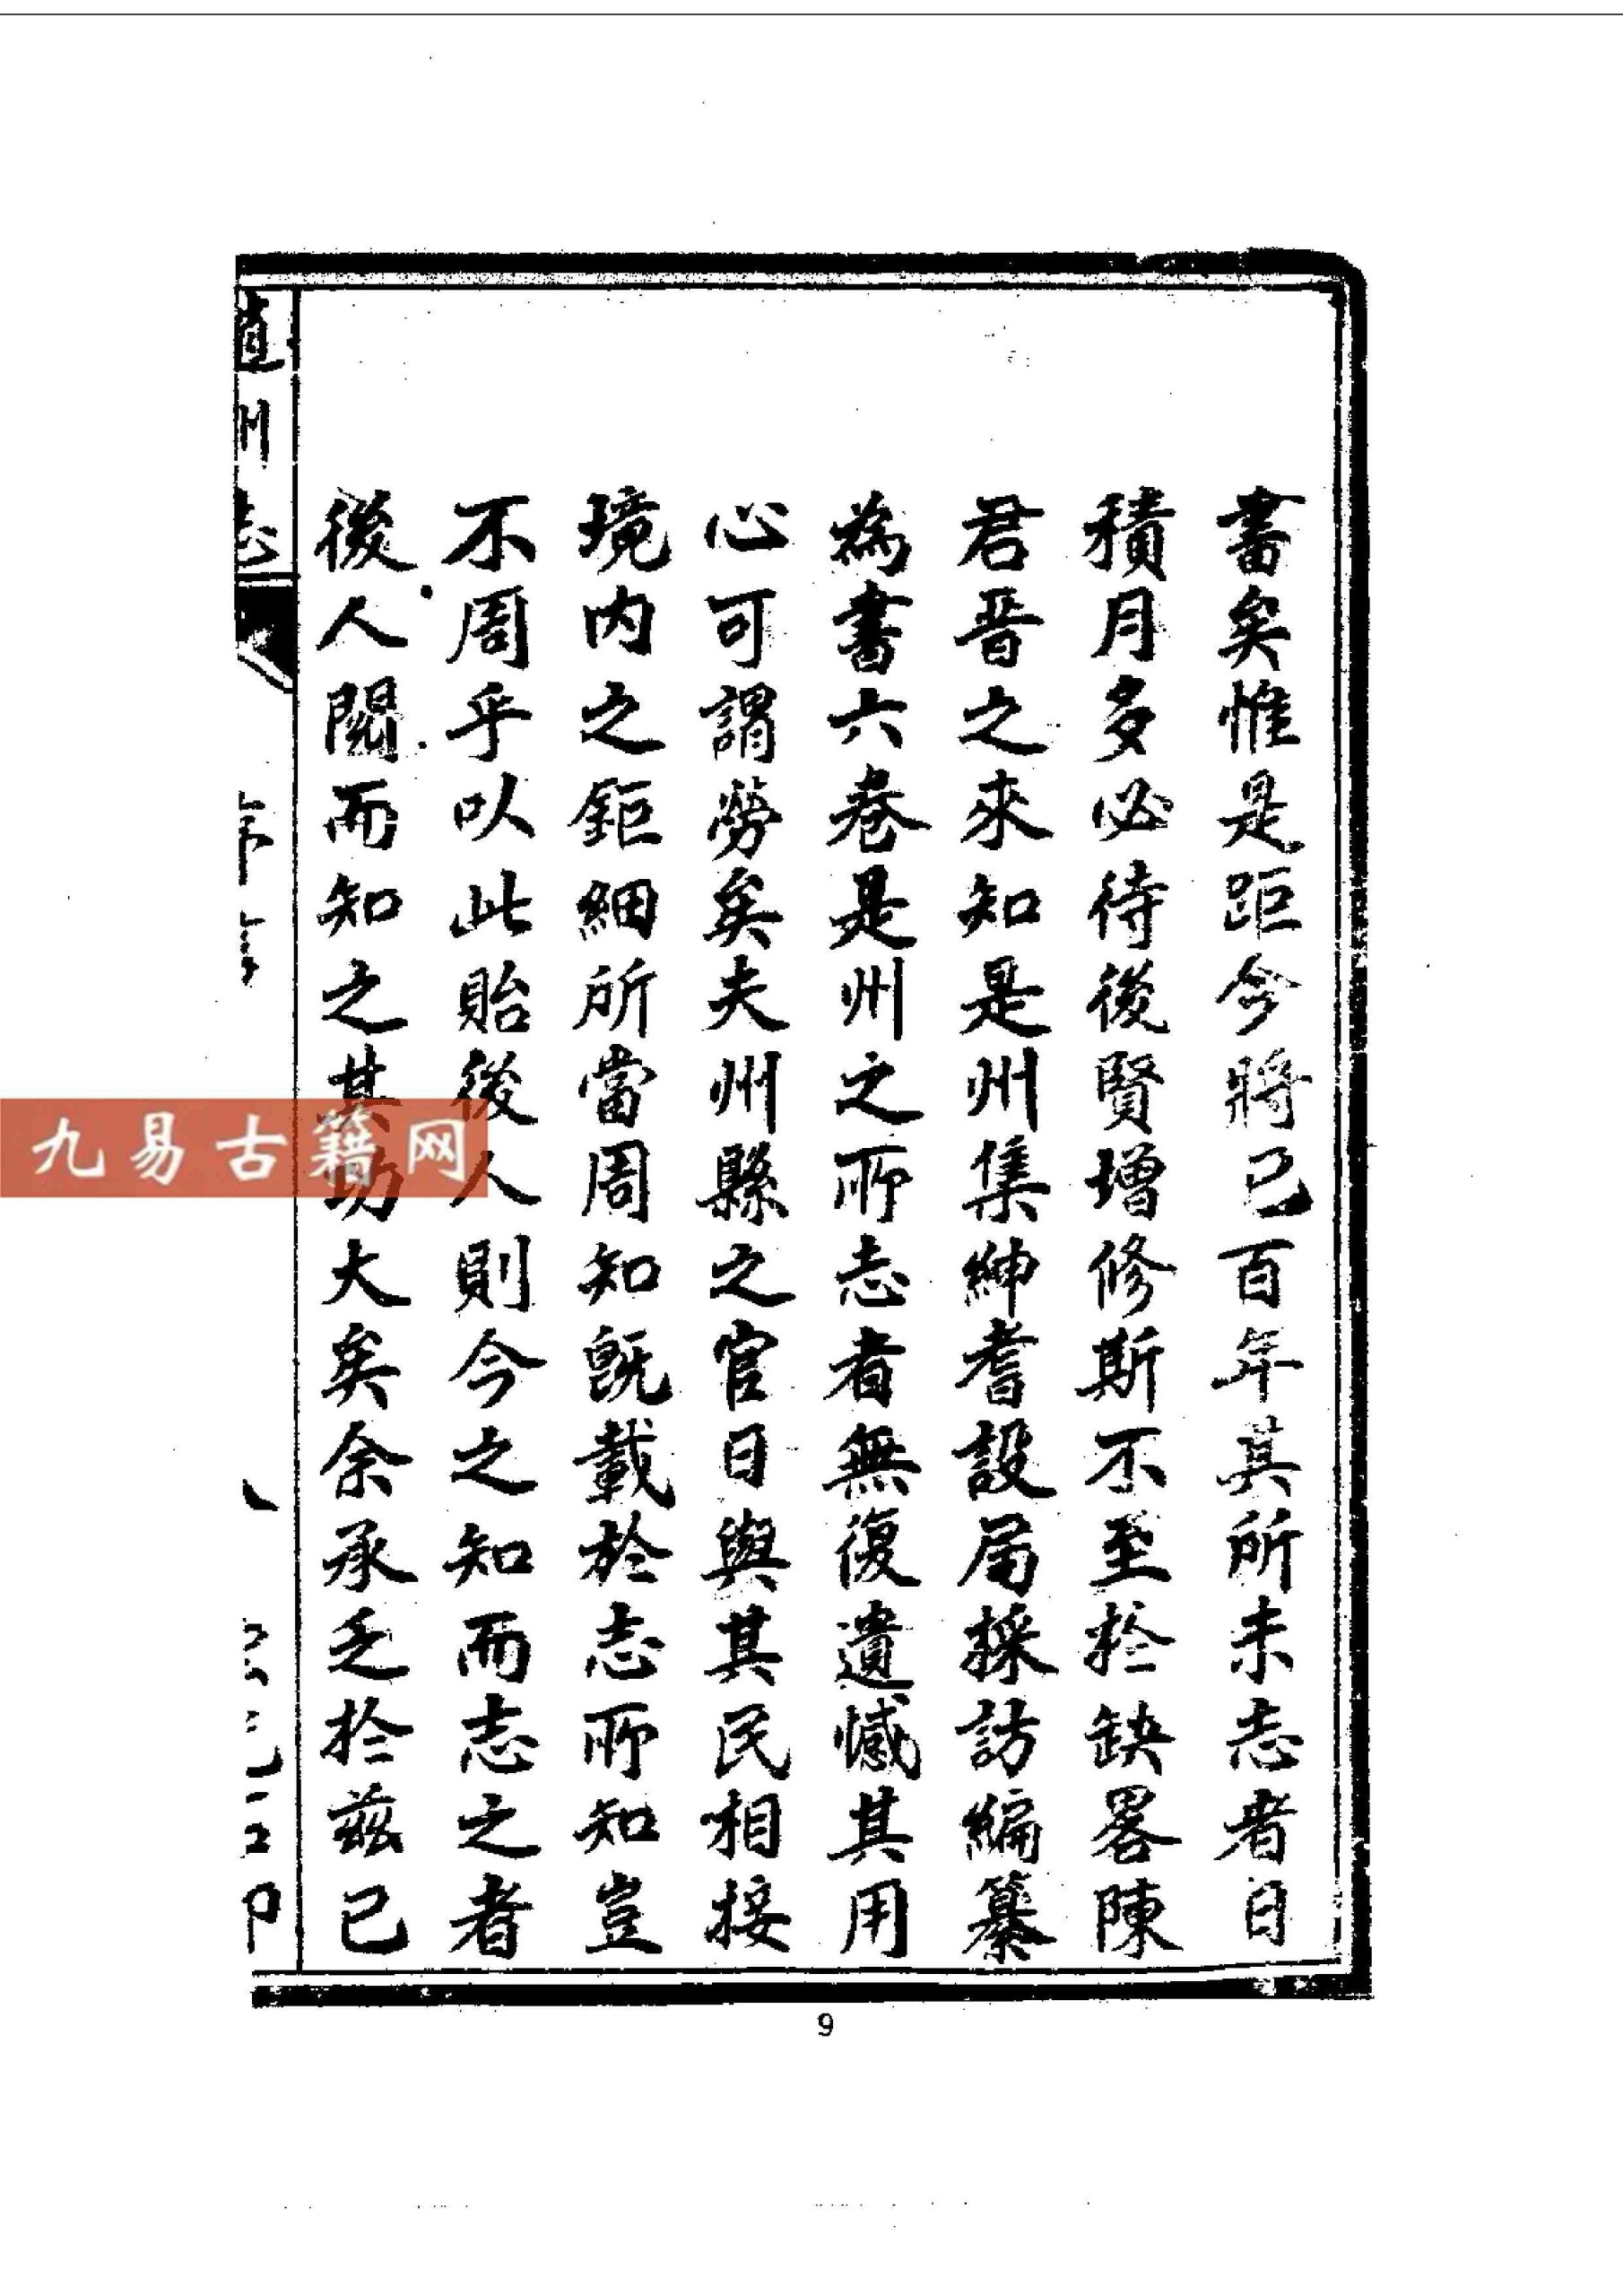 書矣惟是距今將已百年其所未志者日
積月多必待後賢增修斯不至於缺畧陳
君晉之來知是州集紳耆設局採訪編纂
為書六卷是州之所志者無復遺憾其用
心可謂勞矣夫州縣之官日與其民相接
境内之鉅細所當周知既載於志所知豈
不周乎以此貽後人則今之知而志之者
後人閱而知之其功大矣余承乏於茲已
道州志
九易古籍网
9